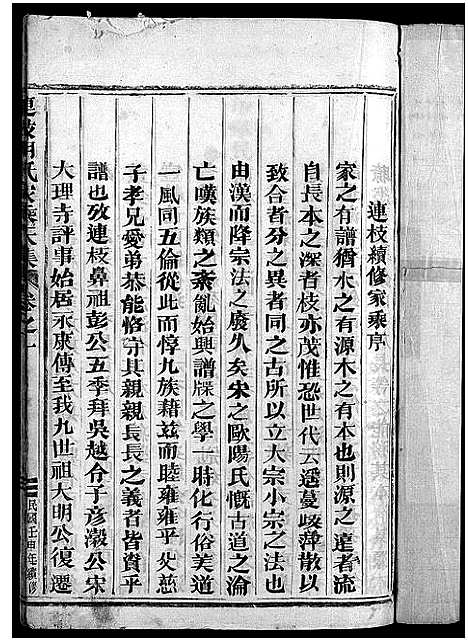 連枝續修家乘序
家之有譜猶水之有源木之有本也則源之遠者流
自長本之深者枝亦茂惟恐世代云遞蔓歧萍散以
致合者分之異者同之古所以立大宗小宗之法也
由漢而降宗法之廢久矣宋之歐陽氏慨古道之淪
亡嘆族類之紊亂始興譜牒之學一時化行俗美道
一風同五倫從此而惇九族藉玆而睦雍雍乎父慈
子孝兄愛弟恭能恪守其親親長長之義者皆資乎
譜也攷連枝鼻祖彭公五季拜吳越分于彥澂公宋
大理寺評事始居永康傳至我九世祖大明公復遷
卷之一
民國壬申年續修